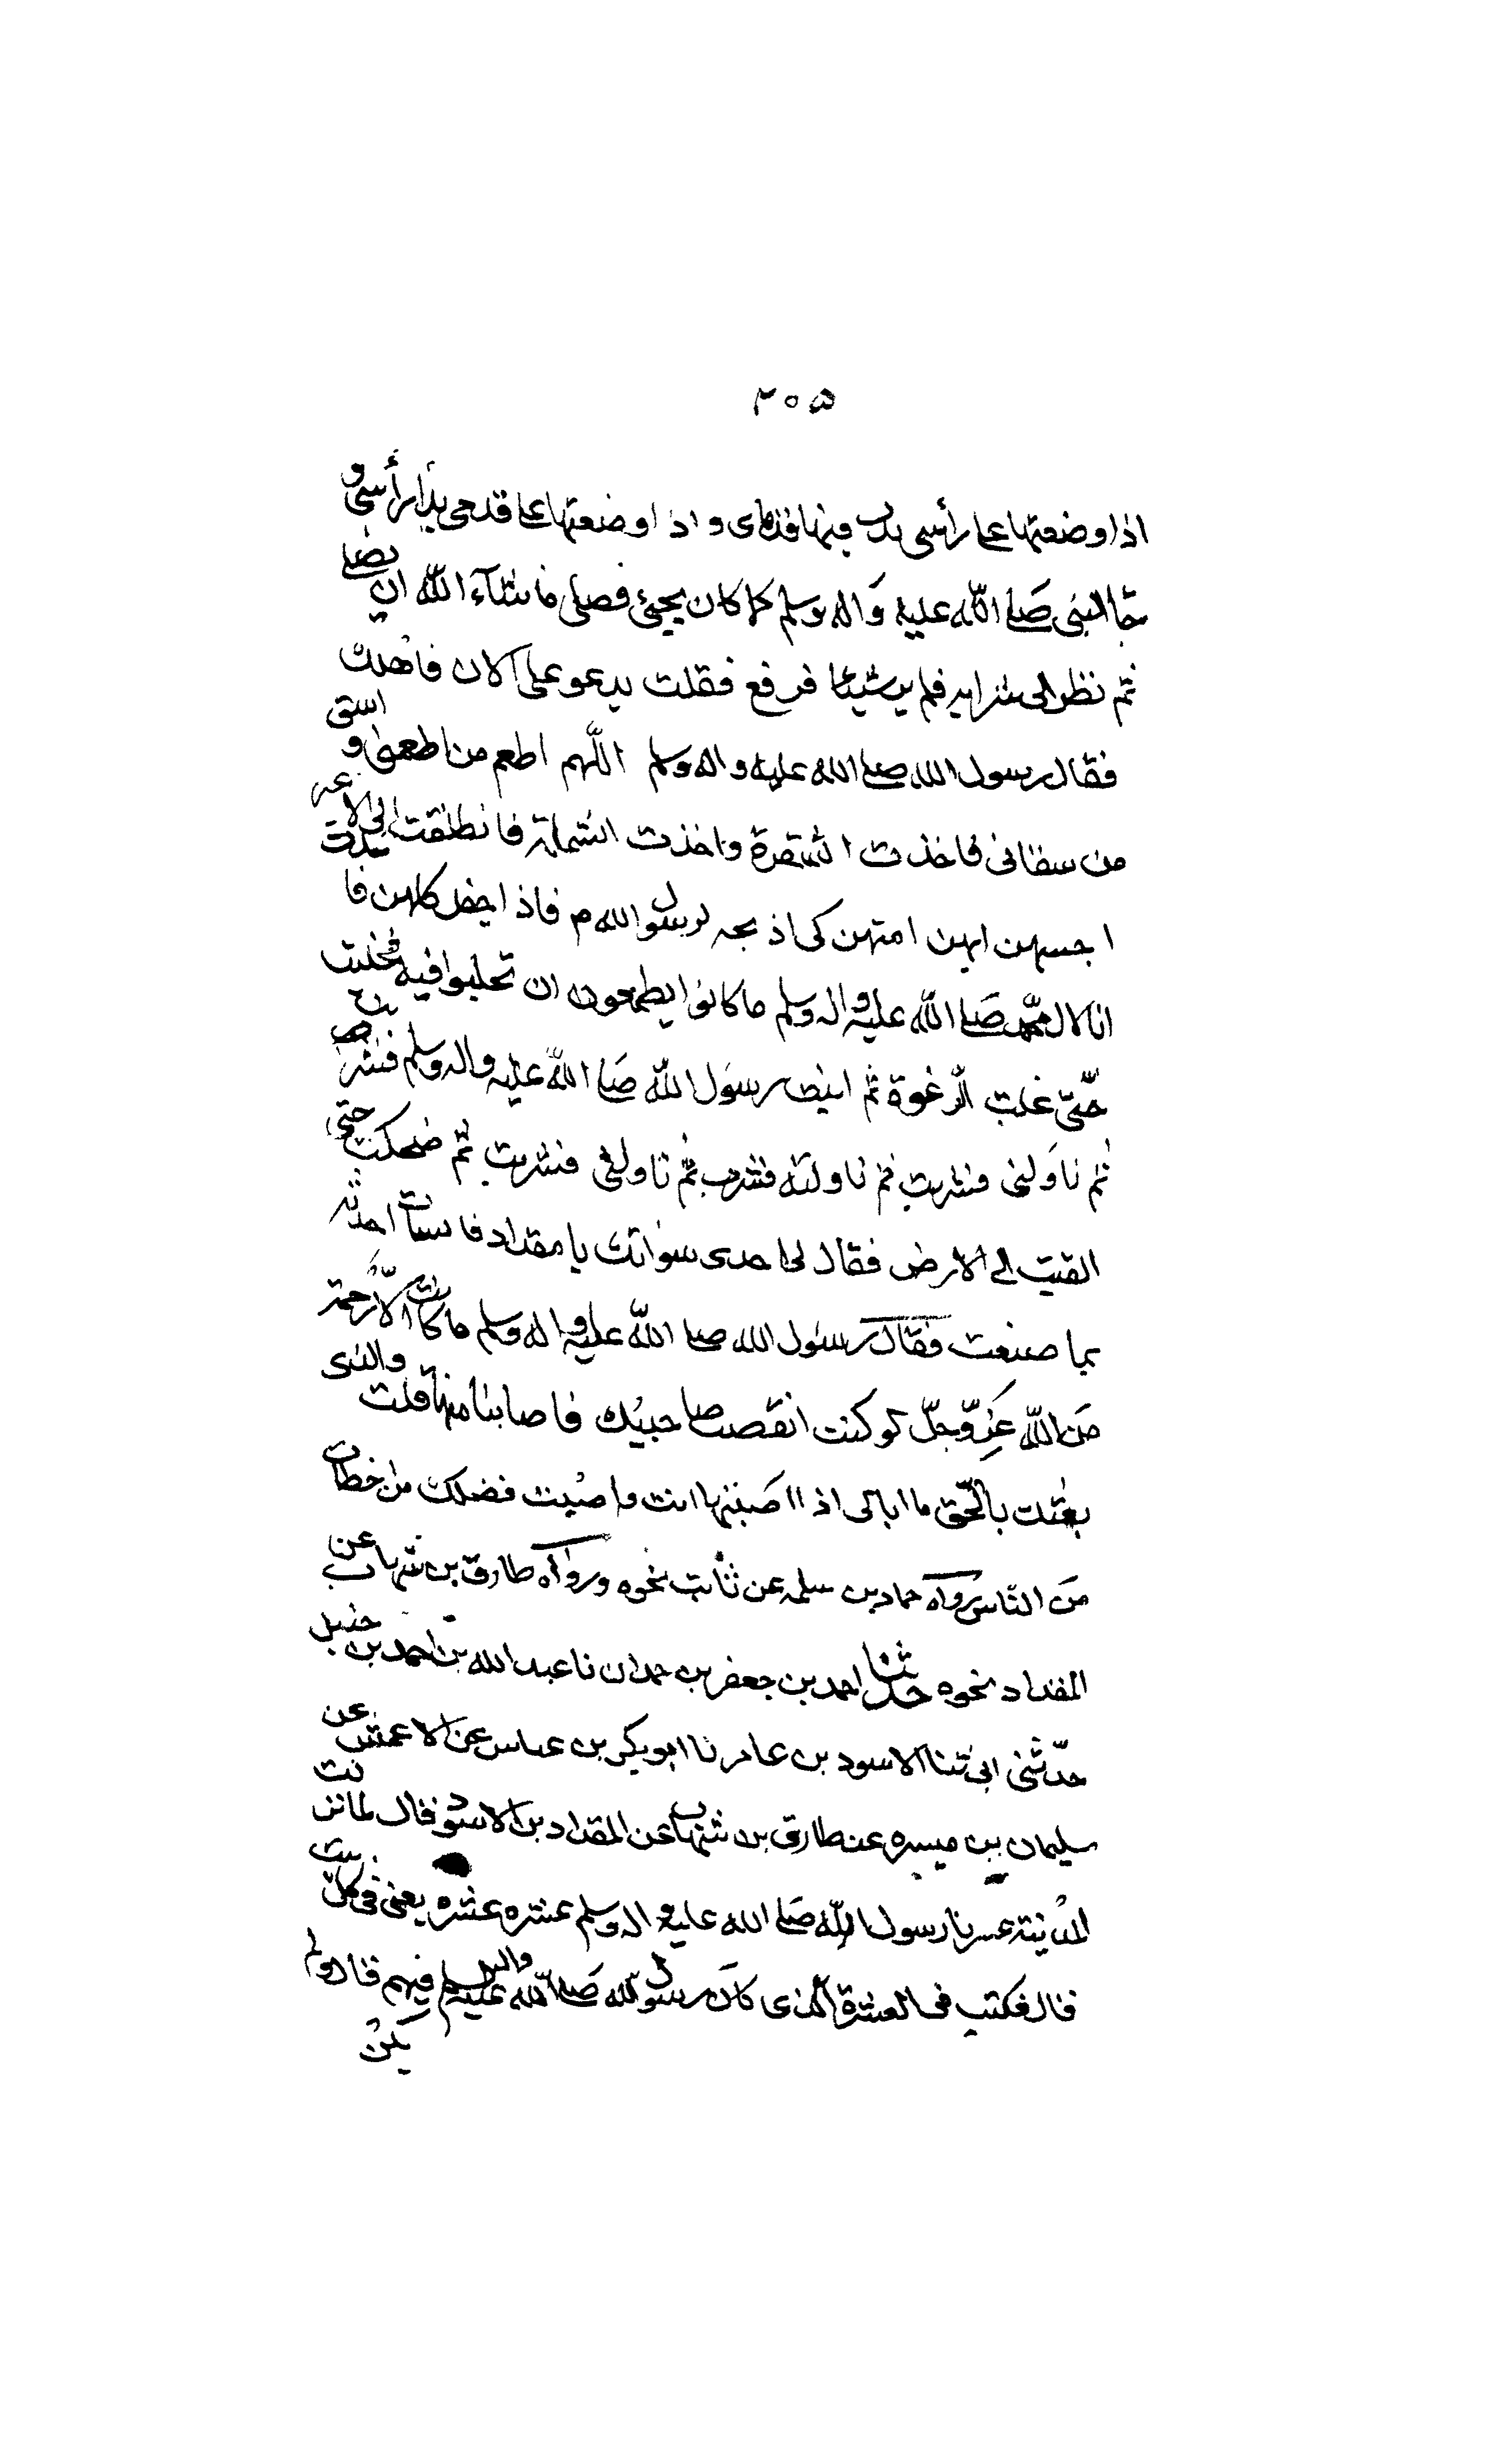 ٢٠٥
اذا وضعتها على رأسى بدت منها قدماى و اذا وضعتها على قدمى بدا رأسى و
جا النبى صَلى اللّه عليه وَاله وسلم كما كان يجيئ فصلى ما شآء اللّه ان يصلى
ثم نظر الى شرابه فلم ير شيئا فرفع فقلت يدعو على الان فاهلك
فقال رسول الله صلى الله عليه واله وسلم اللّهم اطعم من اطعمنى و اسق
من سقانى فاخذت الشفرة واخذت الشملة فانطلقت الى الاعنز
اجسهن ايهن اسمن كى اذبحه لرسول الله م فاذا حفل كلهن فا
انا لال محمّد صَلى اللّه عليه واله وسلم ما كانوا يطمعون ان تحلبوا فيه فحلبت
حتّى علت الرغوة ثم اتيت رسول اللّه صَلى اللّه عليه واله وسلم فشرب
ثم ناولنى فشربت ثم ناولته فشرب ثم ناولنى فشربت ثم ضحكت حتى
القيت الى الارض فقال لى احدى سواتك يا مقداد فانشات احدثه
بما صنعت فقال رسول الله صلى اللّه عليه واله وسلم ما كانت الا رحمة
مَن اللّه عَزّ وجلّ لو كنت ايقضت صاحبيك فاصابنا منها قلت والذى
بعثك بالحّق ما ابالى اذا اصَبتها انت واصبت فضلك من اخطات
مَن النّاس رواه حماد بن سلمه عن ثابت نحوه ورواه طارق بن شهاب عن
المقداد نحوه حدثنا احمد بن جعفر بن حمدان نا عبد الله بن احمد بن حنبل
حدّثنى ابى ثنا الاسود بن عامر نا ابو بكر بن عياس عن الاعمش عن
سليمان بن ميسره عن طارق بن شهاب عن المقداد بن الاسود قال لما نزلنا
المدينة عشرنا رسول اللّه صَلى الله عليه واله وسلم عشره عشره يعنى فى كل بيت
قال فكنت فى العشرة الذى كان رسول اللّه صَلى اللّه عليه واله وسلم فيهم قال ولم
يكن